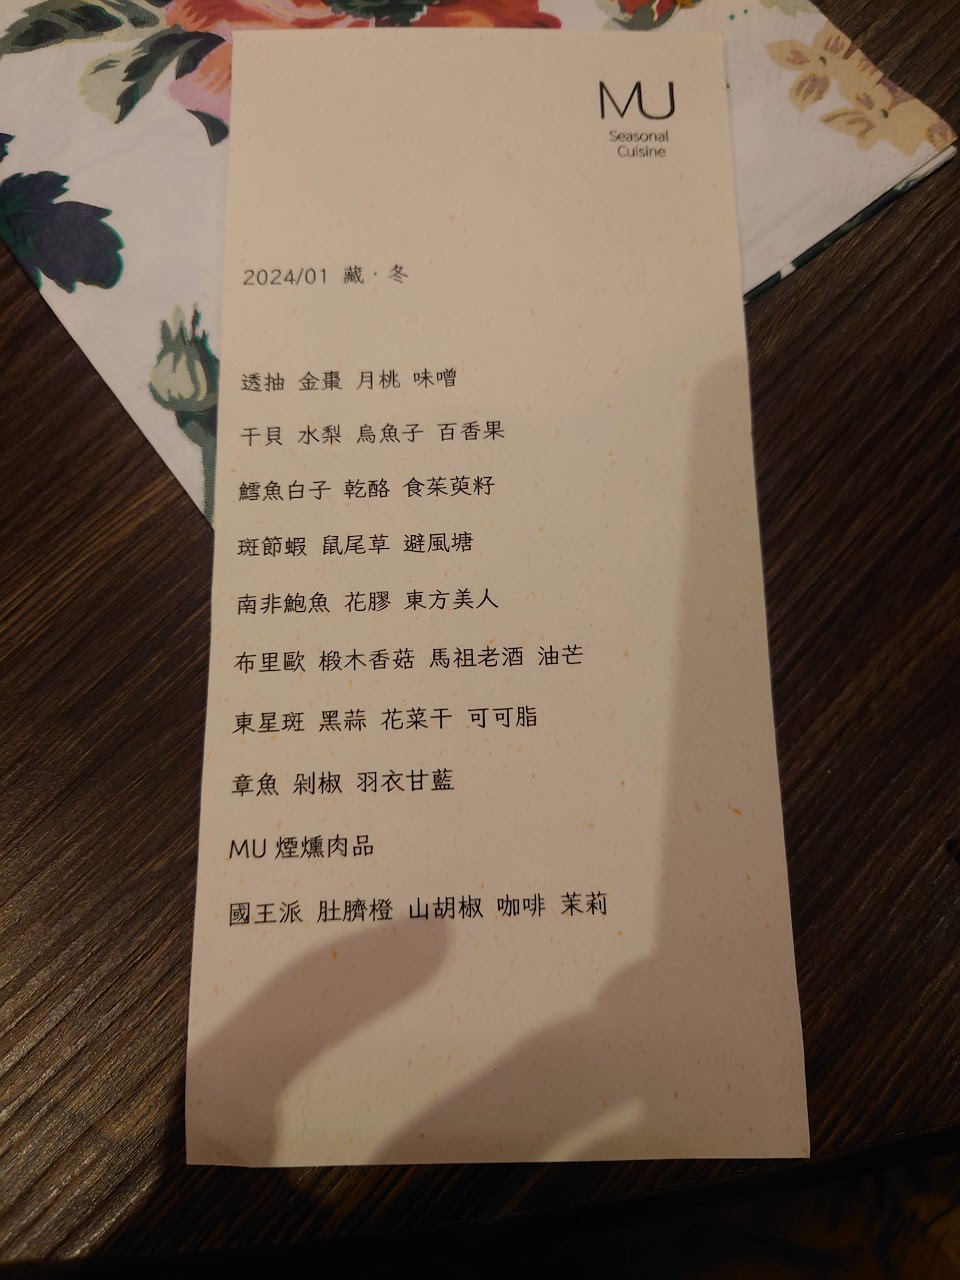 MU
Seasonal
Cuisine
2024/01 藏·冬
透抽 金棗 月桃 味噌
干貝 水梨 烏魚子 百香果
鱈魚白子 乾酪 食茱萸籽
斑節蝦 鼠尾草 避風塘
南非鮑魚 花膠 東方美人
布里歐 椴木香菇 馬祖老酒 油芒
東星斑 黑蒜 花菜干 可可脂
章魚 剁椒 羽衣甘藍
MU 煙燻肉品
國王派 肚臍橙 山胡椒 咖啡 茉莉